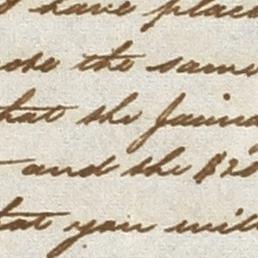 I have plac
ose the same
hat she found
and the $20
hat you will